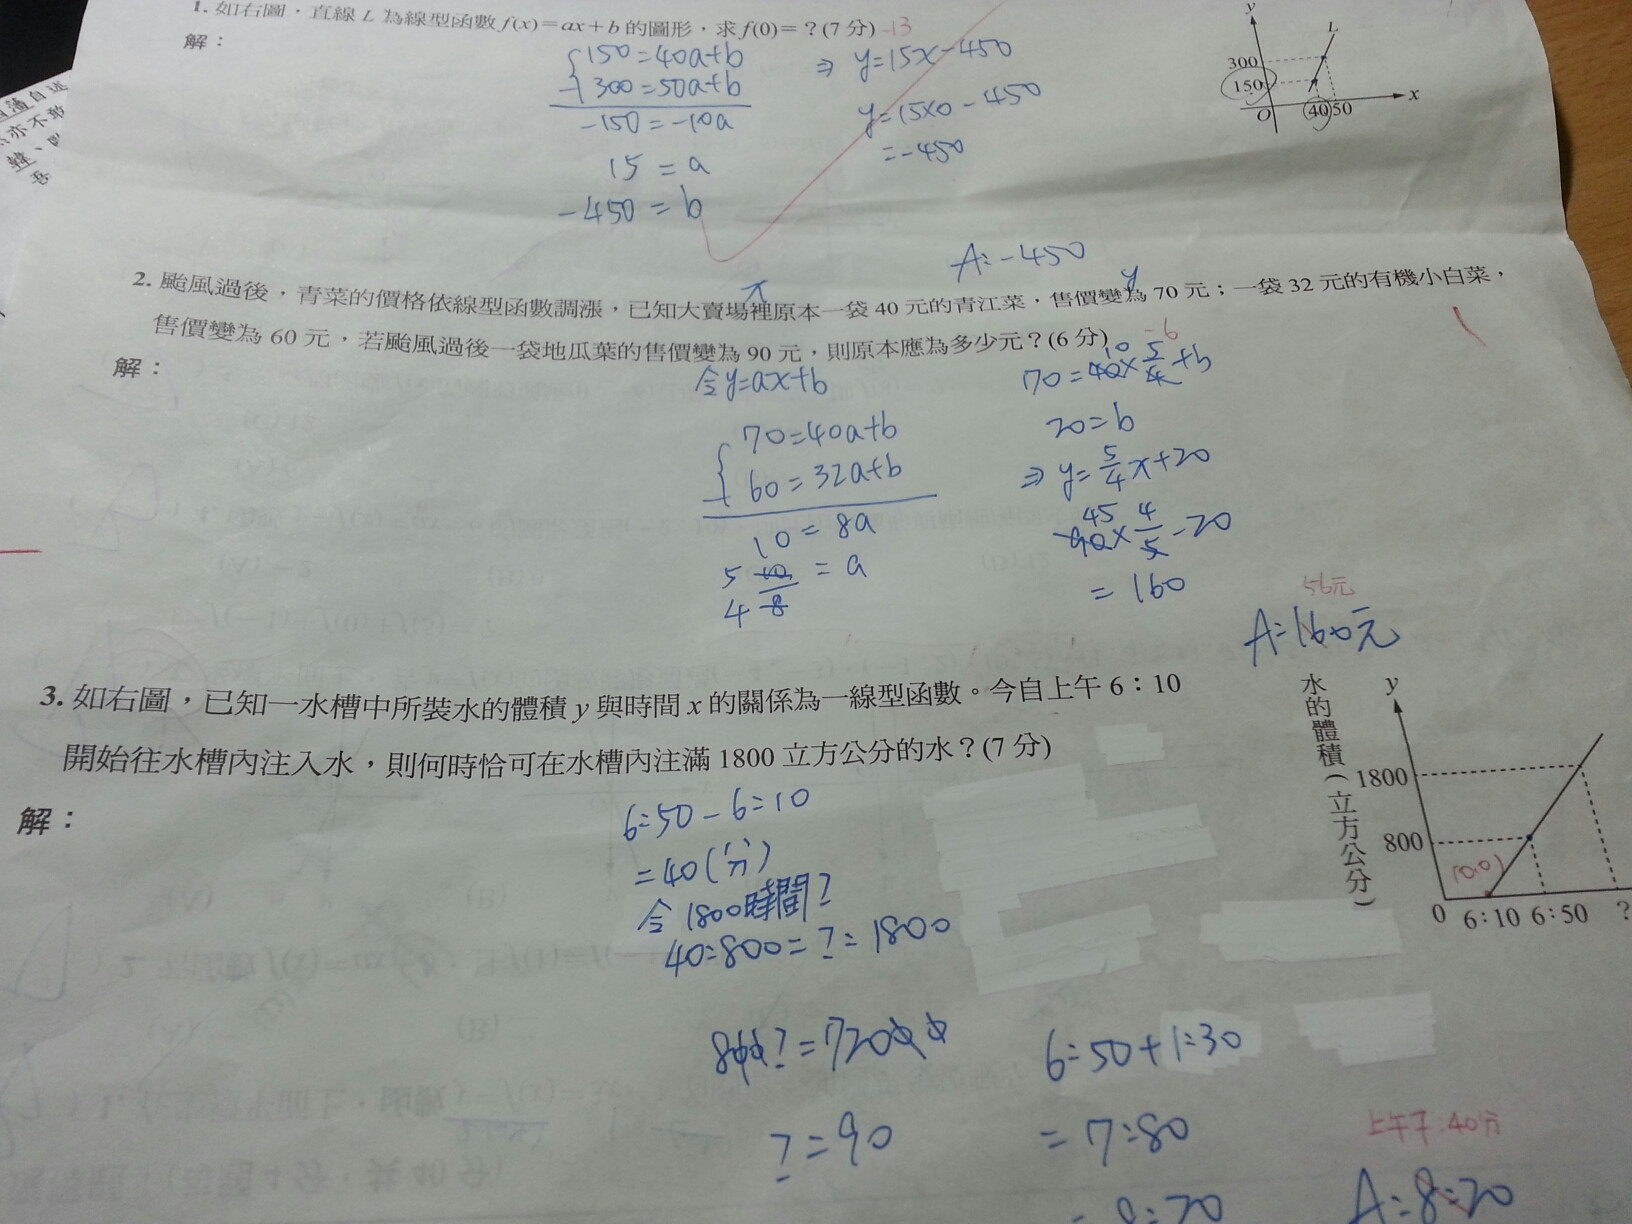 1. 如右圖，直線 L 為線型函數 f(x)=ax+b 的圖形，求 f(0)=？(7 分) -13
解：
150=40a+b
300=50a+b
-150=-10a
15=a
-450=b
⇒ y=15x-450
y=15×0-450
=-450
A:-450
y
L
300
150
O
40 50
x
x
y
2. 颱風過後，青菜的價格依線型函數調漲，已知大賣場裡原本一袋 40 元的青江菜，售價變為 70 元；一袋 32 元的有機小白菜，
售價變為 60 元，若颱風過後一袋地瓜葉的售價變為 90 元，則原本應為多少元？(6 分) -6
解：
令y=ax+b
70=40a+b
60=32a+b
10=8a
5 10
4 8 =a
10 5
70=40×4+b
20=b
⇒ y=5/4x+20
45 4
90×5-20
=160
56元
A:160元
3. 如右圖，已知一水槽中所裝水的體積 y 與時間 x 的關係為一線型函數。今自上午 6：10
開始往水槽內注入水，則何時恰可在水槽內注滿 1800 立方公分的水？(7 分)
解：
6:50-6:10
=40(分)
令1800時間?
40:800=?:1800
800?=72000
?=90
6:50+1:30
=7:80
=8:20
上午7:40分
A:8:20
水的體積(立方公分)
y
1800
800
(0,0)
0 6：10 6：50 ?